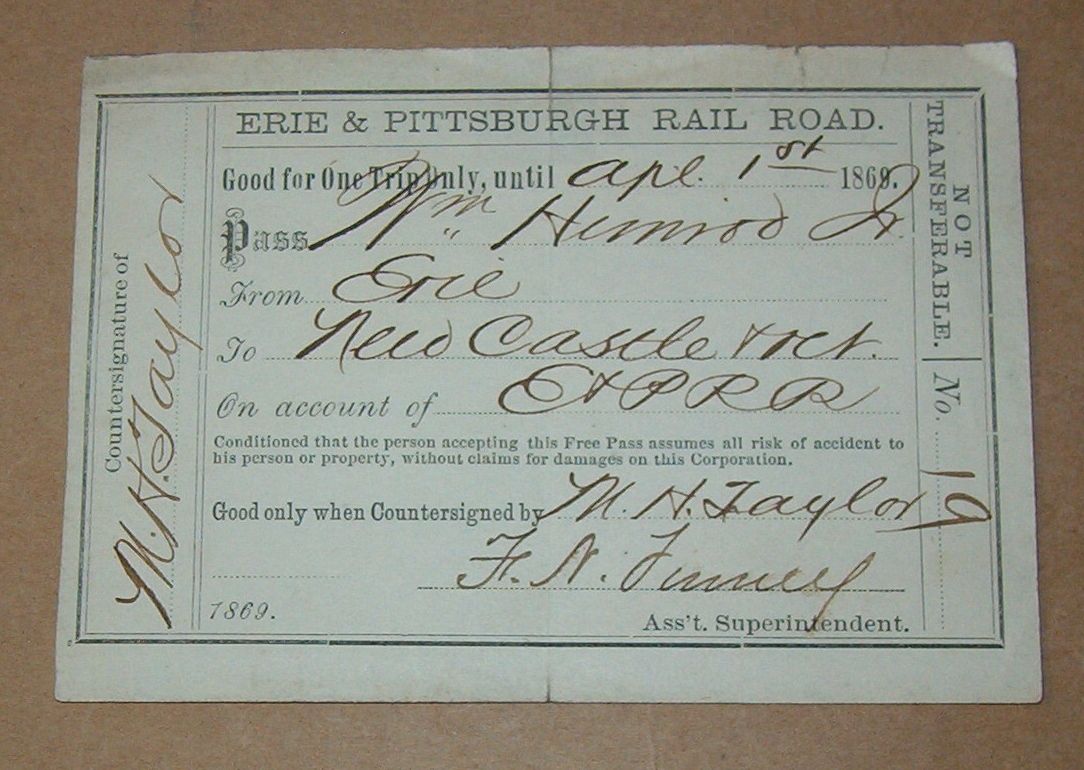 ERIE & PITTSBURGH RAIL ROAD.
Good for One Trip Only, until Apl. 1st 1869.
Pass Wm Himrod Jr.
From Erie
To New Castle & ret.
On account of E & P R R
Conditioned that the person accepting this Free Pass assumes all risk of accident to
his person or property, without claims for damages on this Corporation.
Good only when Countersigned by M. H. Taylor
F. N. Finney
1869. Ass't. Superintendent.
Countersignature of
M. H. Taylor
NOT
TRANSFERABLE.
No. 19